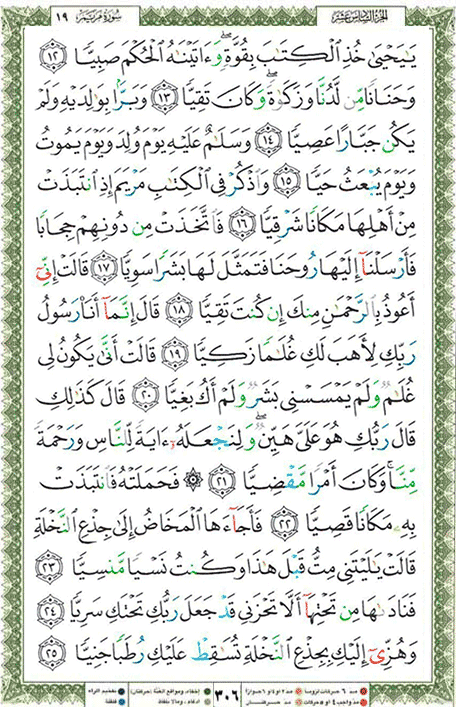 الجزء السادس عشر سورة مريم ١٩
يَٰيَحۡيَىٰ خُذِ ٱلۡكِتَٰبَ بِقُوَّةٖۖ وَءَاتَيۡنَٰهُ ٱلۡحُكۡمَ صَبِيّٗا ١٢
وَحَنَانٗا مِّن لَّدُنَّا وَزَكَوٰةٗۖ وَكَانَ تَقِيّٗا ١٣ وَبَرَّۢا بِوَٰلِدَيۡهِ وَلَمۡ
يَكُن جَبَّارًا عَصِيّٗا ١٤ وَسَلَٰمٌ عَلَيۡهِ يَوۡمَ وُلِدَ وَيَوۡمَ يَمُوتُ
وَيَوۡمَ يُبۡعَثُ حَيّٗا ١٥ وَٱذۡكُرۡ فِي ٱلۡكِتَٰبِ مَرۡيَمَ إِذِ ٱنتَبَذَتۡ
مِنۡ أَهۡلِهَا مَكَانٗا شَرۡقِيّٗا ١٦ فَٱتَّخَذَتۡ مِن دُونِهِمۡ حِجَابٗا
فَأَرۡسَلۡنَآ إِلَيۡهَا رُوحَنَا فَتَمَثَّلَ لَهَا بَشَرٗا سَوِيّٗا ١٧ قَالَتۡ إِنِّيٓ
أَعُوذُ بِٱلرَّحۡمَٰنِ مِنكَ إِن كُنتَ تَقِيّٗا ١٨ قَالَ إِنَّمَآ أَنَا۠ رَسُولُ
رَبِّكِ لِأَهَبَ لَكِ غُلَٰمٗا زَكِيّٗا ١٩ قَالَتۡ أَنَّىٰ يَكُونُ لِي
غُلَٰمٞ وَلَمۡ يَمۡسَسۡنِي بَشَرٞ وَلَمۡ أَكُ بَغِيّٗا ٢٠ قَالَ كَذَٰلِكِ
قَالَ رَبُّكِ هُوَ عَلَيَّ هَيِّنٞۖ وَلِنَجۡعَلَهُۥٓ ءَايَةٗ لِّلنَّاسِ وَرَحۡمَةٗ
مِّنَّاۚ وَكَانَ أَمۡرٗا مَّقۡضِيّٗا ٢١ ۞ فَحَمَلَتۡهُ فَٱنتَبَذَتۡ
بِهِۦ مَكَانٗا قَصِيّٗا ٢٢ فَأَجَآءَهَا ٱلۡمَخَاضُ إِلَىٰ جِذۡعِ ٱلنَّخۡلَةِ
قَالَتۡ يَٰلَيۡتَنِي مِتُّ قَبۡلَ هَٰذَا وَكُنتُ نَسۡيٗا مَّنسِيّٗا ٢٣
فَنَادَىٰهَا مِن تَحۡتِهَآ أَلَّا تَحۡزَنِي قَدۡ جَعَلَ رَبُّكِ تَحۡتَكِ سَرِيّٗا ٢٤
وَهُزِّيٓ إِلَيۡكِ بِجِذۡعِ ٱلنَّخۡلَةِ تُسَٰقِطۡ عَلَيۡكِ رُطَبٗا جَنِيّٗا ٢٥
مد ٦ حركات لزوما مد ٢ أو ٤ أو ٦ جوازا ٣٠٦ إخفاء، ومواقع الغنة (حركتان) تفخيم الراء
مد واجب ٤ أو ٥ حركات مد حركتان إدغام، وما لا يلفظ قلقلة